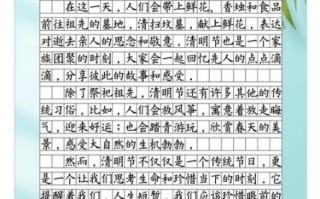 在这一天，人们会带上鲜花、香烛和食品
前往祖先的墓地，清扫坟墓，献上鲜花，表达
对逝去亲人的思念和敬意。清明节也是一个家
族团聚的时刻，大家会一起回忆先人的点点滴
滴，分享彼此的故事和感受。
除了祭祀祖先，清明节还有许多其他的传
统习俗，比如，人们会放风筝，寓意着放走晦
气，迎来好运；也会踏青游玩，欣赏春天的美
景，感受大自然的生机勃勃。
然而，清明节不仅仅是一个传统节日，更
是一个让我们思考生命和珍惜当下的时刻，它
提醒着我们，人生短暂，我们应该珍惜眼前的